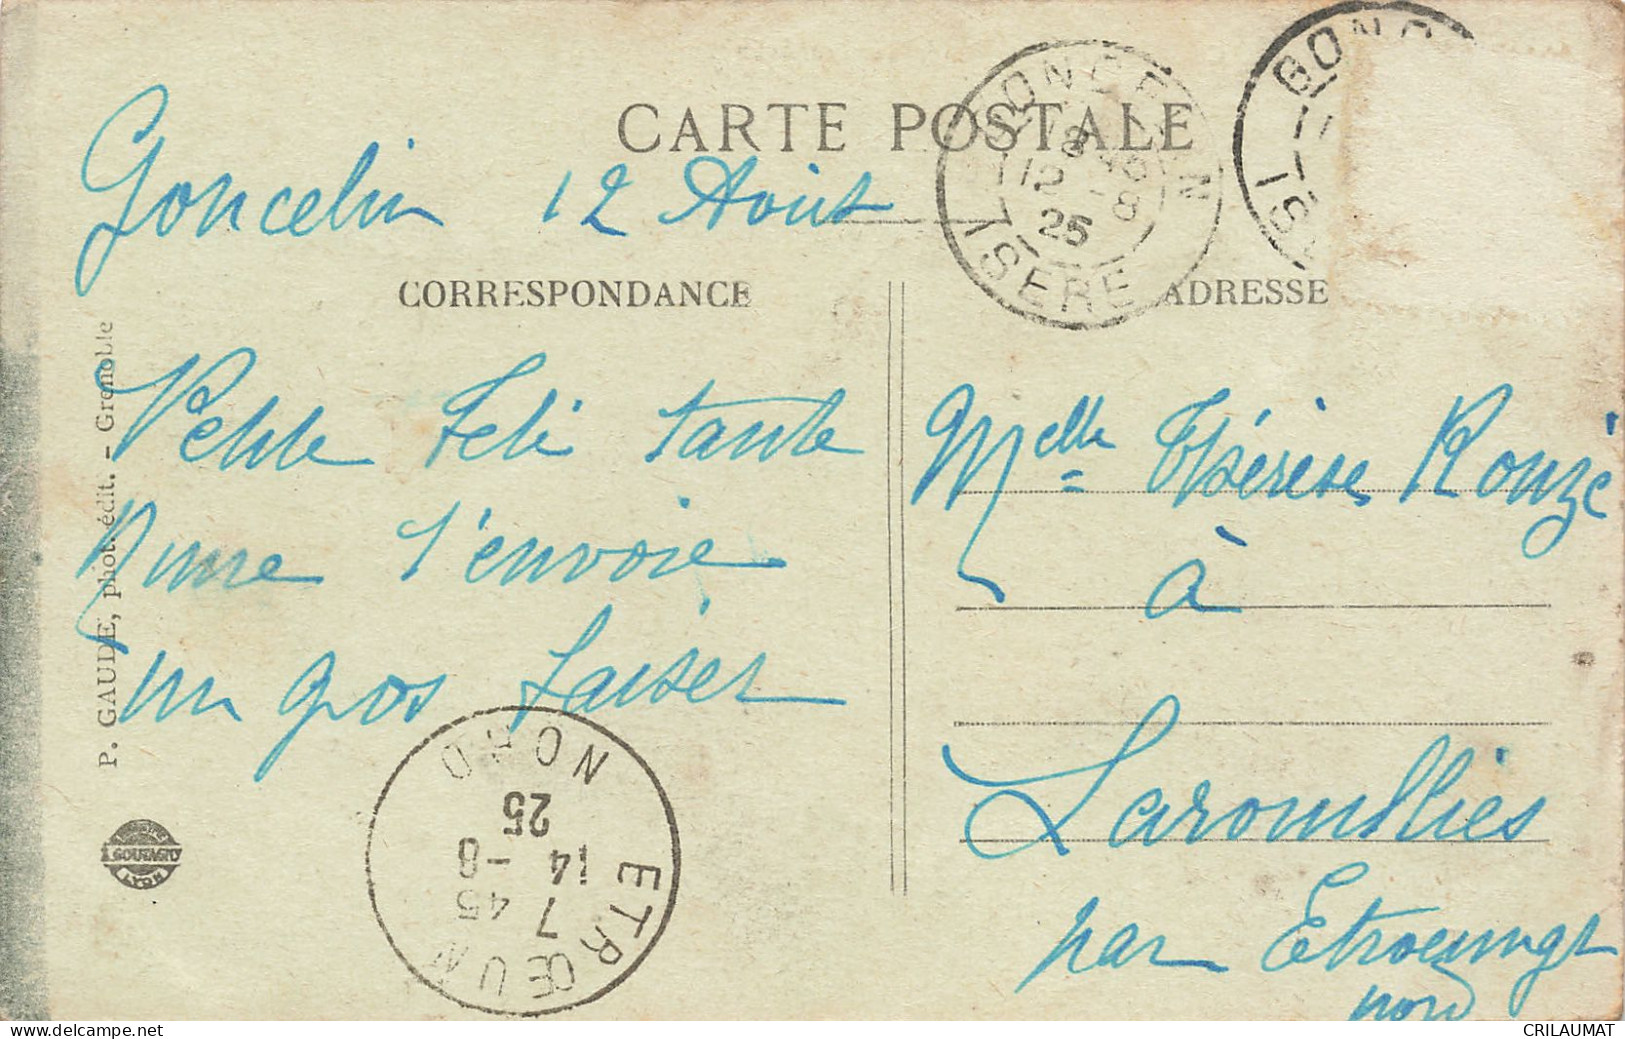 CARTE POSTALE
Goncelin 12 Août
CORRESPONDANCE
ADRESSE
Petite Féli tante
t'envoie
un gros baiser
Melle Thérèse Rouzé
à
Larouillies
par Etroeungt
nord
GONCELIN
18 45
12 -8
25
ISERE
GONC
ISE
ETRŒUN
7 45
14 -8
25
NORD
P. GAUDE, phot. édit. - Grenoble
GOUTAGNY
LYON
CRILAUMAT